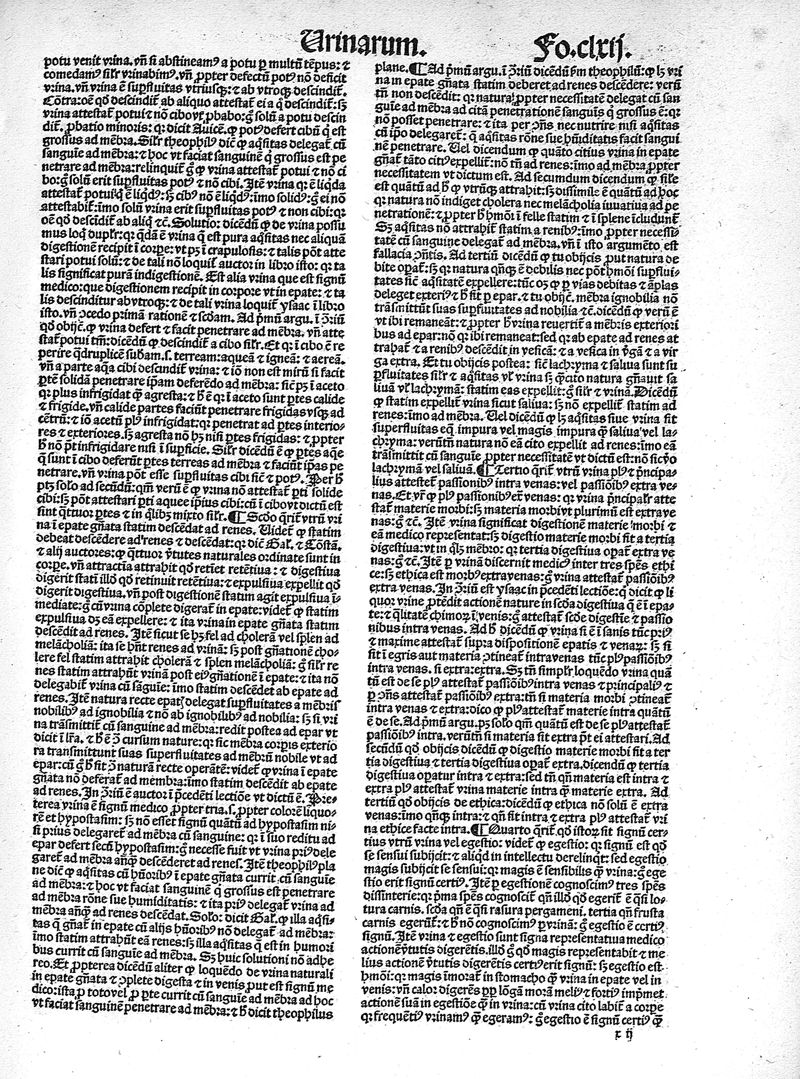 Urinarum.
Fo.clxij.
potu venit vrina. vñ si abstineamꝰ a potu ꝑ multũ tẽpus: ⁊
comedamꝰ sil̃r vrinabimꝰ. vñ ꝓpter defectũ potꝰ nõ deficit
vrina. vñ vrina ẽ suꝑfluitas vtriusqꝫ: ⁊ ab vtroqꝫ descindit̃.
Cõtra: oẽ qđ descindit̃ ab aliquo attestat̃ ei a q̃ descindit̃: sꝫ
vrina attestat̃ potui ⁊ nõ cibo. vt ꝓbabo: g̃ solũ a potu descin
dit̃. ꝓbatio minoris: qꝛ dicit Auicẽ. ꝙ potꝰ defert cibũ q̃ est
grossus ad mẽbra. Sil̃r theophilꝰ dic̃ ꝙ aq̃sitas delegat̃ cũ
sanguĩe ad mẽbra: ⁊ hoc vt faciat sanguinẽ q̃ grossus est pe
netrare ad mẽbra: relinquit̃ g̃ ꝙ vrina attestat̃ potui ⁊ nõ ci
bo: g̃ solũ erit suꝑfluitas potꝰ ⁊ nõ cibi. Itẽ vrina qꝛ ẽ liq̃da
attestat̃ potui q̃ ẽ liq̃dꝰ: sꝫ cibꝰ nõ ẽ liq̃dꝰ: imo solidꝰ: g̃ ei nõ
attestabit̃: imo solũ vrina erit suꝑfluitas potꝰ ⁊ non cibi: qꝛ
oẽ qđ descidit̃ ab aliq̃ ⁊c̃. Solutio: dicẽdũ ꝙ de vrina possu
mus loq̃ duplr̃: qꝛ q̃dã ẽ vrina q̃ est pura aq̃sitas nec aliquã
digestionẽ recipit ĩ corꝑe: vt pꝫ ĩ crapulosis: ⁊ talis põt atte
stari potui solũ: ⁊ de tali nõ loquit̃ auctor in libro isto: qꝛ ta
lis significat purã indigestionẽ. Est alia vrina que est signũ
medico: que digestionem recipit in corpore vt in epate: ⁊ ta
lis descinditur ab vtroqꝫ: ⁊ de tali vrina loquit̃ ysaac ĩ libro
isto. vñ ↄcedo primã rationẽ ⁊ scđam. Ad pᵐũ argu. ĩ ↄ̃riũ
qđ obijc̃. ꝙ vrina defert ⁊ facit penetrare ad mẽbra. vñ atte
stat̃ potui tm̃: dicẽdũ ꝙ descindit̃ a cibo sil̃r. Et qꝛ ĩ cibo ẽ re
perire q̃druplicẽ subam. s. terream: aqueã ⁊ igneã: ⁊ aereã.
vñ a parte aq̃a cibi descindit̃ vrina: ⁊ iõ non est mirũ si facit
ꝑtẽ solidã penetrare ip̃am deferẽdo ad mẽbra: sic̃ pꝫ ĩ aceto
qꝛ plus infrigidat q̃ agresta: ⁊ h̃ ẽ qꝛ ĩ aceto sunt ꝑtes calide
⁊ frigide. vñ calide partes faciũt penetrare frigidas vsqꝫ ad
cẽtrũ: ⁊ iõ acetũ plꝰ infrigidat: qꝛ penetrat ad ꝑtes interio-
res ⁊ exteriores. sꝫ agresta nõ hꝫ nisi ꝑtes frigidas: ⁊ ꝓpter
h̃ nõ põt infrigidare nisi ĩ suꝑficie. Sil̃r dicẽdũ ẽ ꝙ ꝑtes aq̃e
q̃ sunt ĩ cibo deferũt ꝑtes terreas ad mẽbra ⁊ faciũt ip̃as pe
netrare. vñ vrina põt esse suꝑfluitas cibi sic̃ ⁊ potꝰ. Per h̃
ptꝫ sol̃o ad secũdũ: qm̃ verũ ẽ ꝙ vrina nõ attestat̃ ꝑti solide
cibi: sꝫ põt attestari ꝑti aquee ip̃ius cibi: cũ ĩ cibo vt dictũ est
sint q̃ttuor ꝑtes ⁊ in q̃libꝫ mixto sil̃r. ¶ Scđo q̃rit̃ vtrũ vri
na ĩ epate gñata statim descẽdat ad renes. Uidet̃ ꝙ statim
debeat descẽdere ad renes ⁊ descẽdat: qꝛ dic̃ Gal. ⁊ Cõstã.
⁊ alij auctores: ꝙ q̃ttuor ṽtutes naturales ordinate sunt in
corꝑe. vñ attractiua attrahit qđ retiẽt retẽtiua: ⁊ digestiua
digerit statĩ illđ qđ retinuit retẽtiua: ⁊ expulsiua expellit qđ
digerit digestiua. vñ post digestionẽ statum agit expulsiua ĩ-
mediate: g̃ cũ vrina cõplete digerat̃ in epate: videt̃ ꝙ statim
expulsiua dꝫ eã expellere: ⁊ ita vrina in epate gñata statim
descẽdit ad renes. Itẽ sicut se hꝫ fel ad cholerã vel splen ad
melãcholiã: ita se hñt renes ad vrinã: sꝫ post gñationẽ cho-
lere fel statim attrahit cholerã ⁊ splen melãcholiã: g̃ sil̃r re
nes statim attrahũt vrinã post eiꝰ gñationẽ ĩ epate: ⁊ ita nõ
delegabit̃ vrina cũ sãguĩe: ĩmo statim descẽdet ab epate ad
renes. Itẽ natura recte opat̃ dꝫ delegat suꝑfluitates a mẽbris
nobilibꝰ ad ignobilia ⁊ nõ ab ignobilibꝰ ad nobilia: sꝫ si vri
na trãsmittit̃ cũ sanguine ad mẽbra: redit postea ad epar vt
dicit ĩ lr̃a. ⁊ h̃ ẽ ↄ̃ cursum nature: qꝛ sic mẽbra corꝑis exterio
ra transmittunt suas superfluitates ad mẽbrũ nobile vt ad
epar: cũ g̃ h̃ fit ↄ̃ naturã recte operãtẽ: videt̃ ꝙ vrina ĩ epate
gñata nõ deferat̃ ad membra: ĩmo statim descẽdit ab epate
ad renes. In ↄ̃riũ ẽ aucto: ĩ p̃cedẽti lectiõe vt dictũ ẽ. Pre-
terea vrina ẽ signũ medico ꝓpter tria. s. ꝓpter colorẽ liquo-
rẽ et hypostasim: sꝫ nõ esset signũ quãtũ ad hypostasim ni-
si prius delegaret̃ ad mẽbra cũ sanguine: qꝛ ĩ suo reditu ad
epar defert secũ hypostasim: g̃ necesse fuit vt vrina priꝰ dele
garet̃ ad mẽbra anq̃ꝫ descẽderet ad renes. Itẽ theophilꝰ pla
ne dic̃ ꝙ aq̃sitas cũ hũoribꝰ ĩ epate gñata currit cũ sanguĩe
ad mẽbra: ⁊ hoc vt faciat sanguinẽ q̃ grossus est penetrare
ad mẽbra rõne sue humiditatis: ⁊ ita priꝰ delegat̃ vrina ad
mẽbra anq̃ꝫ ad renes descẽdat. Sol̃o: dicit Gal. ꝙ illa aq̃si-
tas q̃ gñat̃ in epate cũ alijs hũoribꝰ nõ delegat̃ ad mẽbra:
ĩmo statim attrahũt eã renes: sꝫ illa aq̃sitas q̃ est in humori
bus currit cũ sanguĩe ad mẽbra. Sꝫ huic solutioni nõ adhe
reo. Et ꝓpterea dicẽdũ aliter ꝙ loquẽdo de vrina naturali
in epate gñata ⁊ ↄplete digesta ⁊ in venis prout est signũ me
dico: ista ꝓ toto vel ꝓ ꝑte currit cũ sanguĩe ad mẽbra ad hoc
vt faciat sanguinẽ penetrare ad mẽbra: ⁊ h̃ dicit theophilus
plane. ¶ Ad pᵐũ argu. ĩ ↄ̃riũ dicẽdũ ẽm theophilũ: ꝙ lꝫ vri
na in epate gñata statim deberet ad renes descẽdere: verũ
tñ non descẽdit: qꝛ natura ꝓpter necessitatẽ delegat cũ san
guĩe ad mẽbra ad citã penetrationẽ sanguĩs q̃ grossus ẽ: qꝛ
nõ posset penetrare: ⁊ ita ꝑ ↄñs nec nutrire nisi aq̃sitas
cũ ip̃o delegaret̃: q̃ aq̃sitas rõne sue hũiditatis facit sangui
nẽ penetrare. Uel dicendum ꝙ quãto citius vrina in epate
gñat̃ tãto citiꝰ expellit̃: nõ tñ ad renes: ĩmo ad mẽbra ꝓpter
necessitatem vt dictum est. Ad secundum dicendum ꝙ sil̃e
est quãtũ ad h̃ ꝙ vtrũqꝫ attrahit: sꝫ dissimile ẽ quãtũ ad hoc
qꝛ natura nõ indiget cholera nec melãcholia iuuatiua ad pe
netrationẽ: ⁊ ꝓpter h̃mõi: ĩ felle statim ⁊ ĩ splene ĩcludunt̃.
Sꝫ aq̃sitas nõ attrahit̃ statim a renibꝰ: ĩmo ꝓpter necessi-
tatẽ cũ sanguine delegat̃ ad mẽbra. vñ ĩ isto argumẽto est
fallacia ↄñtis. Ad tertiũ dicẽdũ ꝙ tu obijcis ꝓut natura de
bite opat̃: sꝫ qꝛ natura qñqꝫ ẽ debilis nec põt h̃mõi suꝑflui-
tates sic̃ aq̃sitatẽ expellere: tũc oꝫ ꝙ ꝑ vias debitas ⁊ ãplas
deleget exteriꝰ: ⁊ h̃ fit ꝑ epar. ⁊ tu obijc̃. mẽbra ignobilia nõ
trãsmittũt suas suꝑfluitates ad nobilia ⁊c̃. dicẽdũ ꝙ verũ ẽ
vt ibi remaneãt: ⁊ ꝓpter h̃ vrina reuertit̃ a mẽbris exteriori
bus ad epar: nõ qꝛ ibi remaneat: sed qꝛ ab epate ad renes at
trahat̃ ⁊ a renibꝰ descẽdit in vesicã: ⁊ a vesica in ṽgã ⁊ a vir
ga extra. Et tu obijcis postea: sic̃ lachryma ⁊ saliua sunt su
ꝑfluitates sil̃r ⁊ aq̃sitas vl̃ vrina sꝫ q̃cito natura gñauit sa
liuã vl̃ lachrymã: statim eas expellit: g̃ sil̃r ⁊ vrinã. Dicẽdũ
ꝙ statim expellit̃ vrina sicut saliua: sꝫ nõ expellit̃ statim ad
renes: ĩmo ad mẽbra. Uel dicẽdũ ꝙ lꝫ aq̃sitas siue vrina sit
suꝑfluitas eq̃ impura vel magis impura q̃ꝫ saliua vel la-
chryma: verũtñ natura nõ eã cito expellit ad renes: ĩmo eã
trãsmittit cũ sanguĩe ꝓpter necessitatẽ vt dictũ est: nõ sic aũt
lachrymã vel saliuã. ¶ Tertio q̃rit̃ vtrũ vrina plꝰ ⁊ p̃ncipa-
lius attestet̃ passionibꝰ intra venas: vel passiõibꝰ extra ve-
nas. Et vr̃ ꝙ plꝰ passionibꝰ ex̃ venas: qꝛ vrina p̃ncipalr̃ atte
stat̃ materie morbi: sꝫ materia morbi vt plurimũ est extra ve
nas: g̃ ⁊c̃. Itẽ vrina significat digestionẽ materie morbi ⁊
eã medico representat: sꝫ digestio materie morbi fit a tertia
digestiua: vt in q̃lꝫ mẽbro: qꝛ tertia digestiua opat̃ extra ve
nas: g̃ ⁊c̃. Itẽ ꝑ vrinã discernit medicꝰ inter tres spẽs ethi
ce: sꝫ ethica est morbꝰ extra venas: g̃ vrina attestat̃ passiõibꝰ
extra venas. In ↄ̃riũ est ysaac in p̃cedẽti lectiõe: q̃ dicit ꝙ li
quor vrine ꝓtẽdit actionẽ nature in scđa digestiua q̃ ẽ ĩ epa-
te: ⁊ q̃litatẽ chimoꝝ ĩ venis: g̃ attestat̃ scđe digestiẽ ⁊ passio
nibus intra venas. Ad h̃ dicẽdũ ꝙ vrina si ẽ ĩ sanis tũc priꝰ
⁊ maxime attestat̃ supra dispositionẽ epatis ⁊ venaꝝ: sꝫ si
fit ĩ egris aut materia ↄtinet̃ intra venas tũc plꝰ passiõibꝰ
intra venas. si extra: extra. Sꝫ tñ simplr̃ loquẽdo vrina quã
tũ est de se plꝰ attestat̃ passiõibꝰ intra venas ⁊ principaliꝰ ⁊
ꝑ ↄñs attestat̃ passiõibꝰ extra: tñ si materia morbi ↄtineat̃
intra venas ⁊ extra: dico ꝙ plꝰ attestat̃ materie intra quãtũ
ẽ de se. Ad pᵐũ argu. pꝫ sol̃o qm̃ quãtũ est de se plꝰ attestat̃
passiõibꝰ intra. verũtñ si materia sit extra põt ei attestari. Ad
secũdũ qđ obijcis dicẽdũ ꝙ digestio materie morbi fit a ter
tia digestiua ⁊ tertia digestiua opat̃ extra. dicendũ ꝙ tertia
digestiua opatur intra ⁊ extra: sed tñ qñ materia est intra ⁊
extra plꝰ attestat̃ vrina materie intra q̃ꝫ materie extra. Ad
tertiũ qđ obijcis de ethica: dicẽdũ ꝙ ethica nõ solũ ẽ extra
venas: ĩmo qñqꝫ intra: ⁊ qñ fit intra ⁊ extra plꝰ attestat̃ vri
na ethice facte intra. ¶ Quarto q̃rit̃ qđ istoꝝ sit signũ cer-
tius vtrũ vrina vel egestio: videt̃ ꝙ egestio: qꝛ signũ est qđ
se sensui subijcit: ⁊ aliq̃d in intellectu derelinq̃t: sed egestio
magis subijcit se sensui: qꝛ magis ẽ sensibilis q̃ꝫ vrina: g̃ ege
stio erit signũ certiꝰ. Itẽ ꝑ egestionẽ cognoscimꝰ tres spẽs
dissinterie: qꝛ pᵐa spẽs cognoscit̃ qñ illđ qđ egerit̃ ẽ q̃si lo-
tura carnis. scđa qñ ẽ q̃si rasura pergameni. tertia qñ frusta
carnis egerũt̃: ⁊ h̃ nõ cognoscimꝰ ꝑ vrinã: g̃ egestio ẽ certiꝰ
signũ. Itẽ vrina ⁊ egestio sunt signa representatiua medico
actionẽ ṽtutis digerẽtis. illđ g̃ qđ magis representabit ⁊ me
lius actionẽ ṽtutis digerẽtis certiꝰ erit signũ: sꝫ egestio est
h̃mõi: qꝛ magis ĩmorat̃ in stomacho q̃ꝫ vrina in epate vel in
venis: vñ calor digerẽs ꝑpꝰ lõgã morã meliꝰ ⁊ fortiꝰ imp̃met
actionẽ suã in egestiõe q̃ꝫ in vrina: cũ vrina cito labit̃ a corꝑe
qꝛ frequẽtiꝰ vrinamꝰ q̃ꝫ egeramꝰ: g̃ egestio ẽ signũ certiꝰ q̃ꝫ
x ij